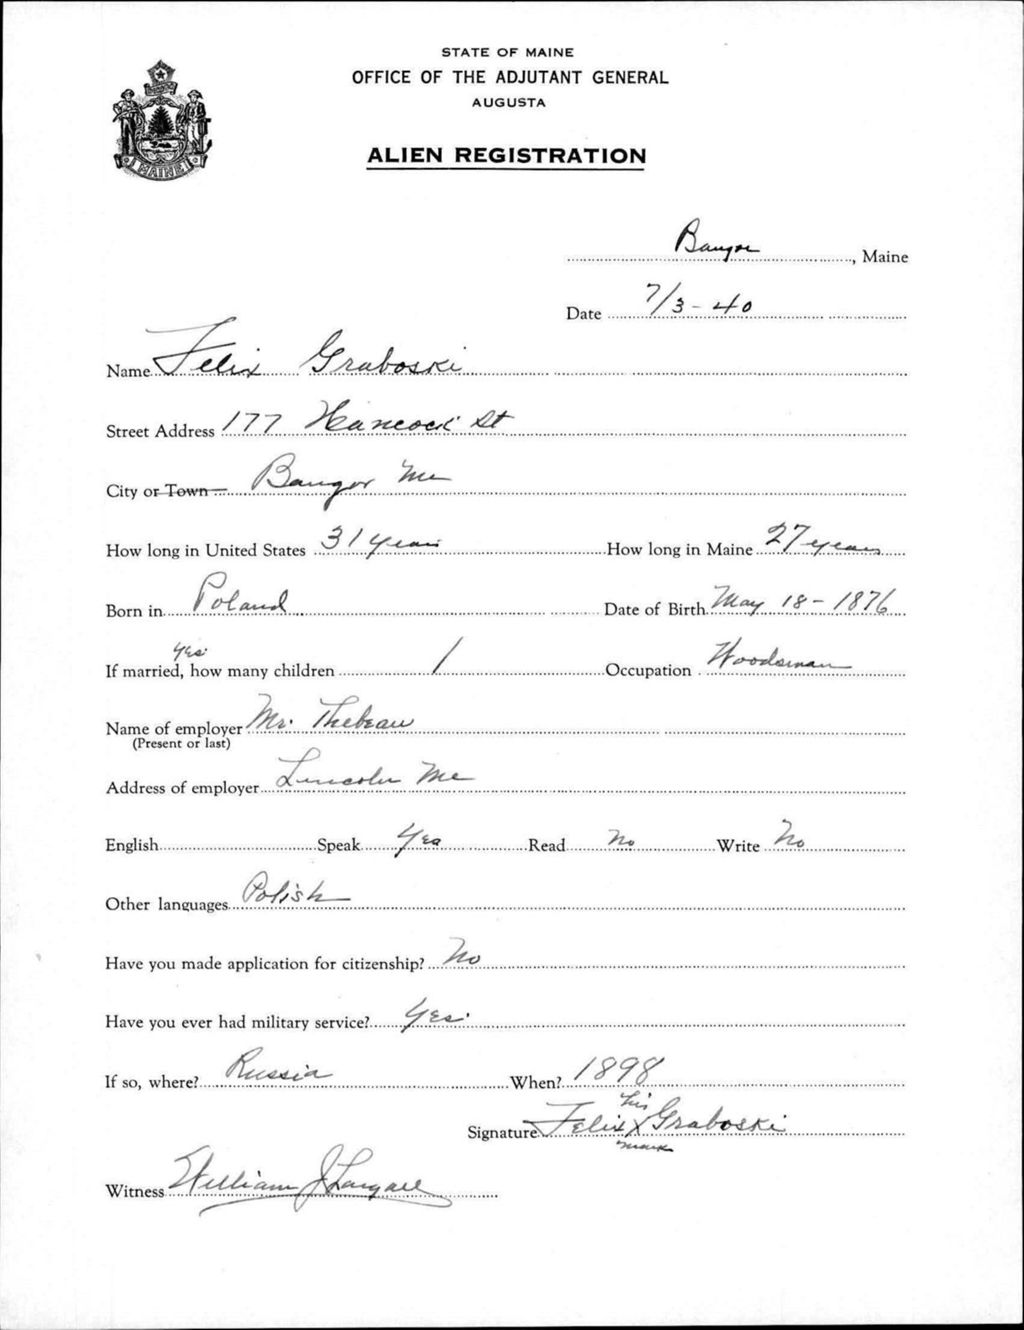 STATE OF MAINE
OFFICE OF THE ADJUTANT GENERAL
AUGUSTA
ALIEN REGISTRATION
MAINE
Bangor, Maine
Date 7/3-40
Name Felix Graboski
Street Address 177 Hancock St
City or Town Bangor Me
How long in United States 31 years How long in Maine 27 years
Born in Poland Date of Birth May 18-1876
yes
If married, how many children 1 Occupation Woodsman
Name of employer Mr. Thebeau
(Present or last)
Address of employer Lincoln Me
English Speak Yes Read No Write No
Other languages Polish
Have you made application for citizenship? No
Have you ever had military service? Yes.
If so, where? Russia When? 1898
his
Signature Felix X Graboski
mark
Witness William J